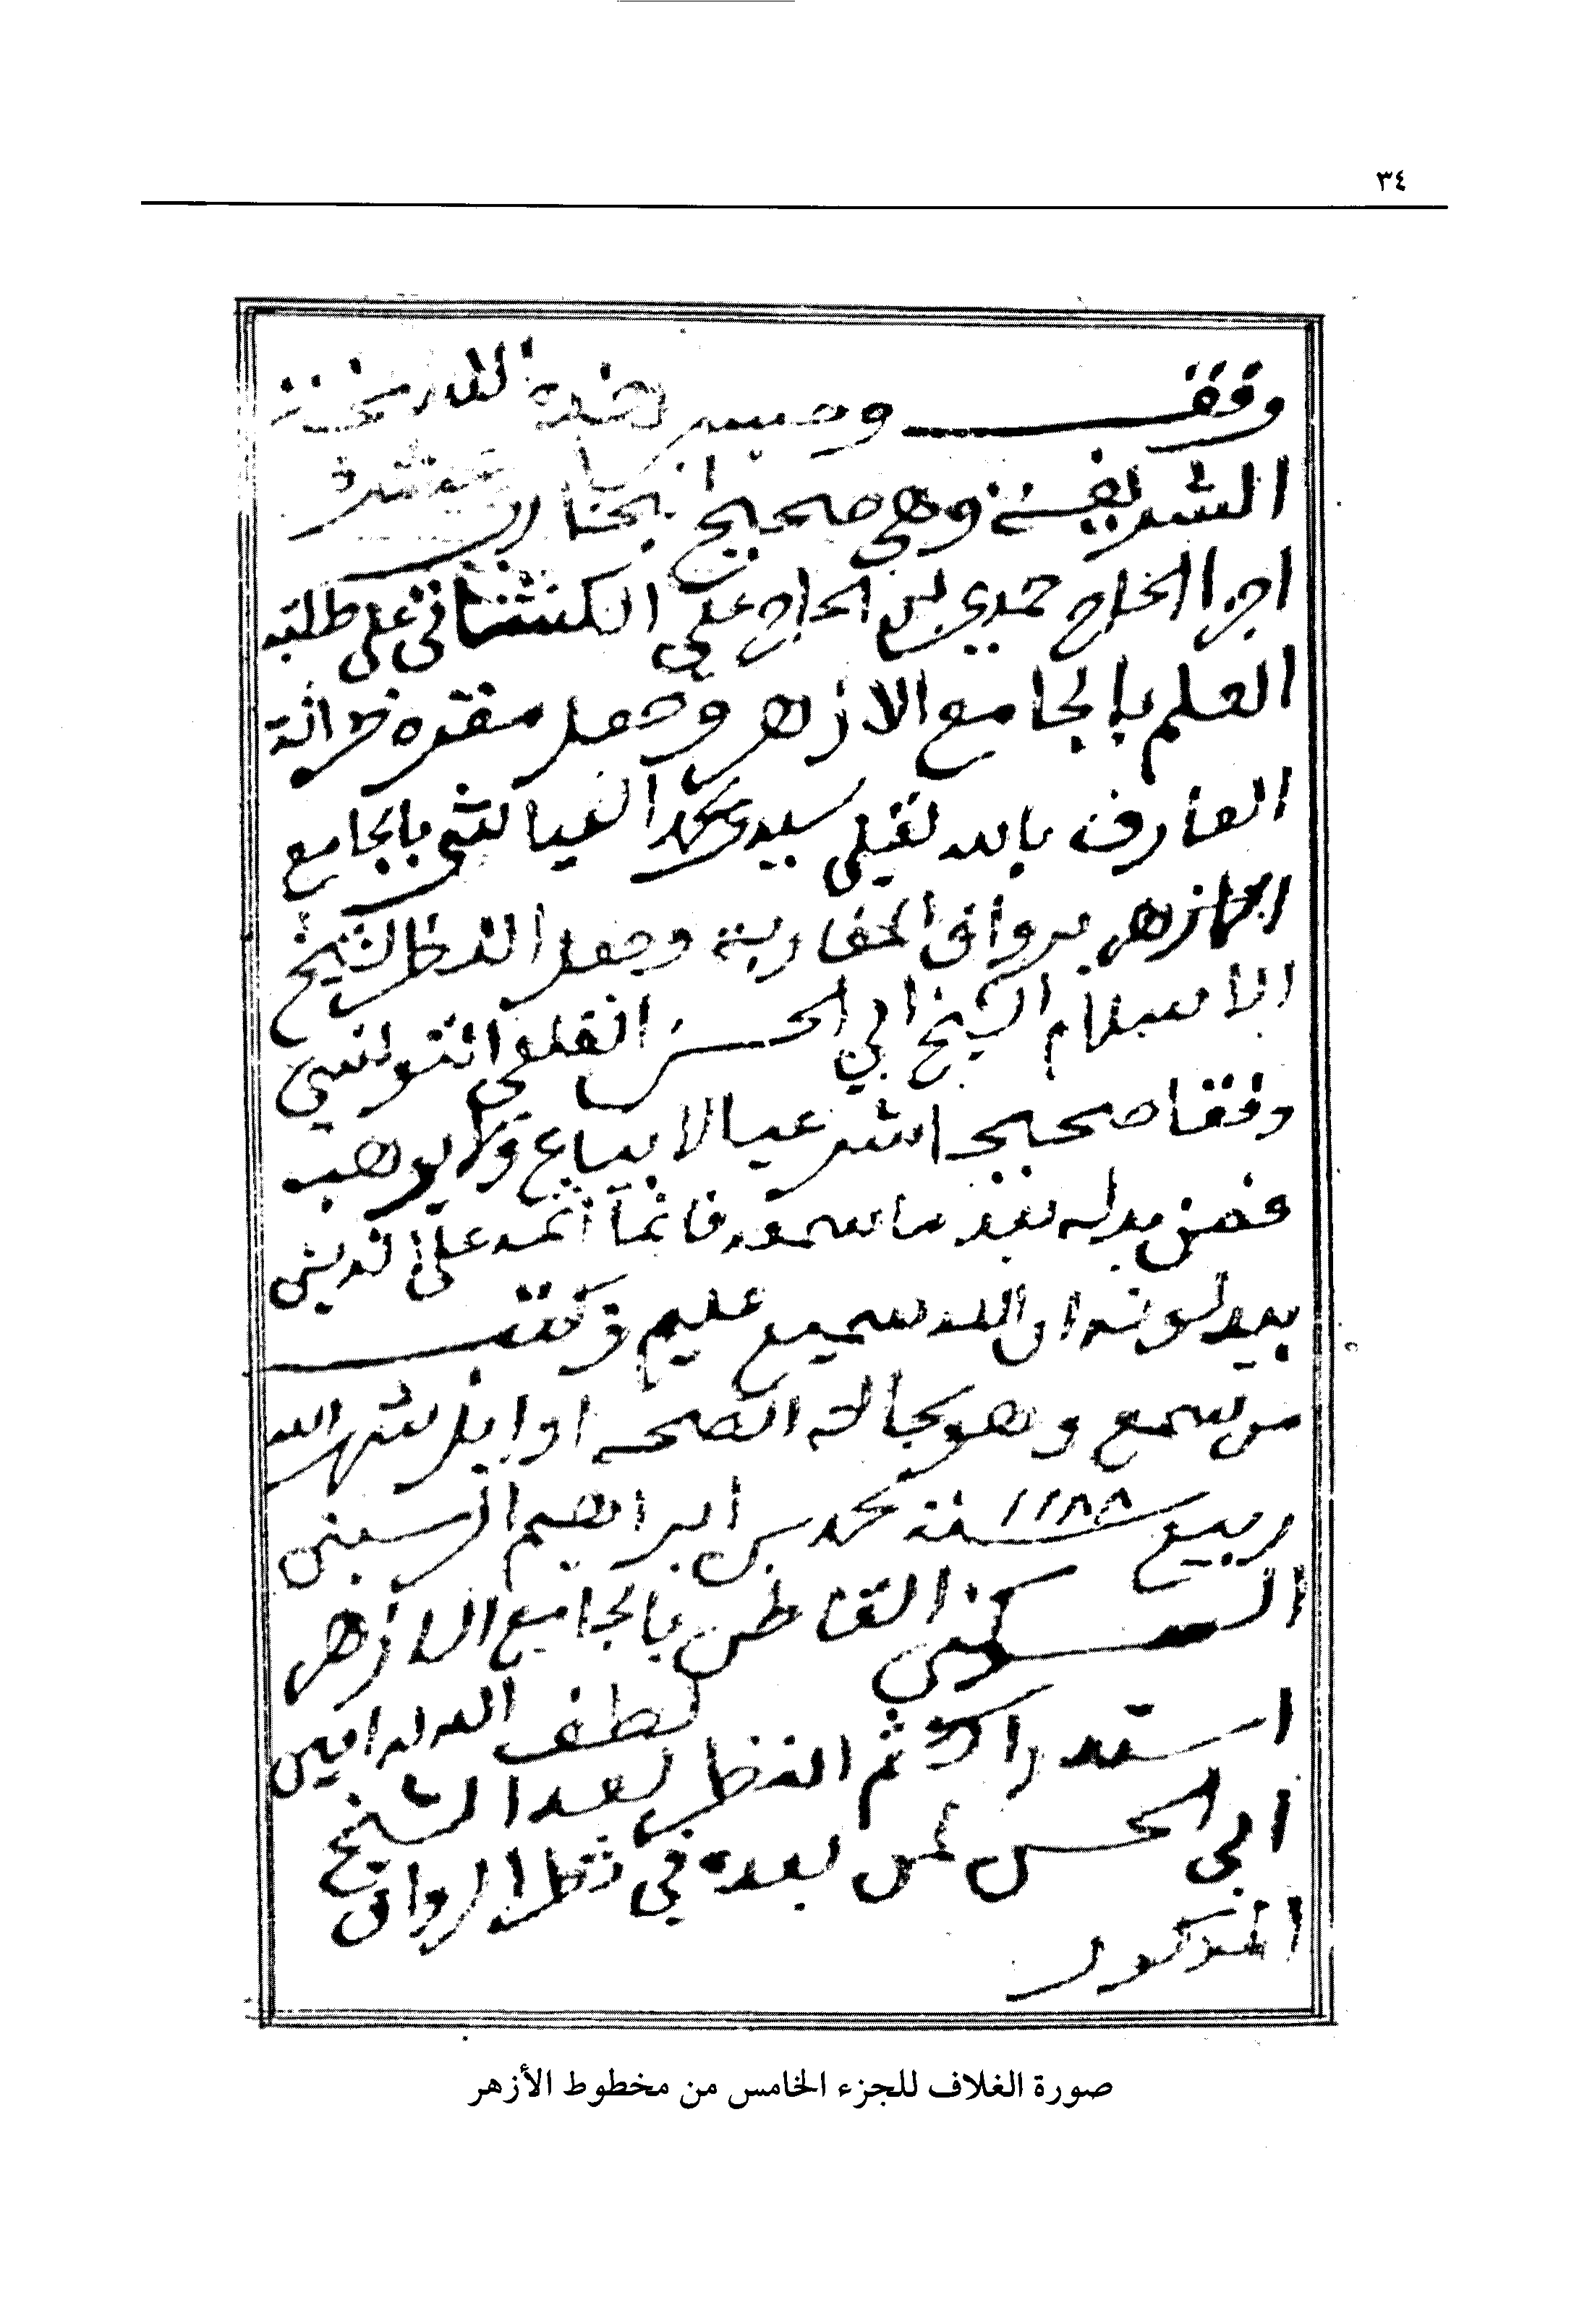 ٣٤
وقف وحبس هذه النسخة
الشريفة وهي صحيح البخاري عشرة
اجزا الحاج حمدي بن الحاج علي على طلبة
العلم بالجامع الازهر وجعل مقره خزانة
العارف بالله سيدي محمد بالجامع
الازهر برواق المغاربة وجعل النظر لشيخ
الاسلام الشيخ ابي الحسن القلعي التونسي
وقفا صحيحا شرعيا لا يباع ولا يوهب
فمن بدله بعد ما سمعه فانما اثمه على الذين
يبدلونه ان الله سميع عليم وكتب
من سمع وهو بحالة الصحه اوايل شهر الله
ربيع سنة ١١٨٨ محمد بن ابراهيم
القاطن بالجامع الازهر
لطف الله به امين
استدراك ثم النظر بعد الشيخ
ابي الحسن لمن بعده في نظر الرواق
المذكور
صورة الغلاف للجزء الخامس من مخطوط الأزهر